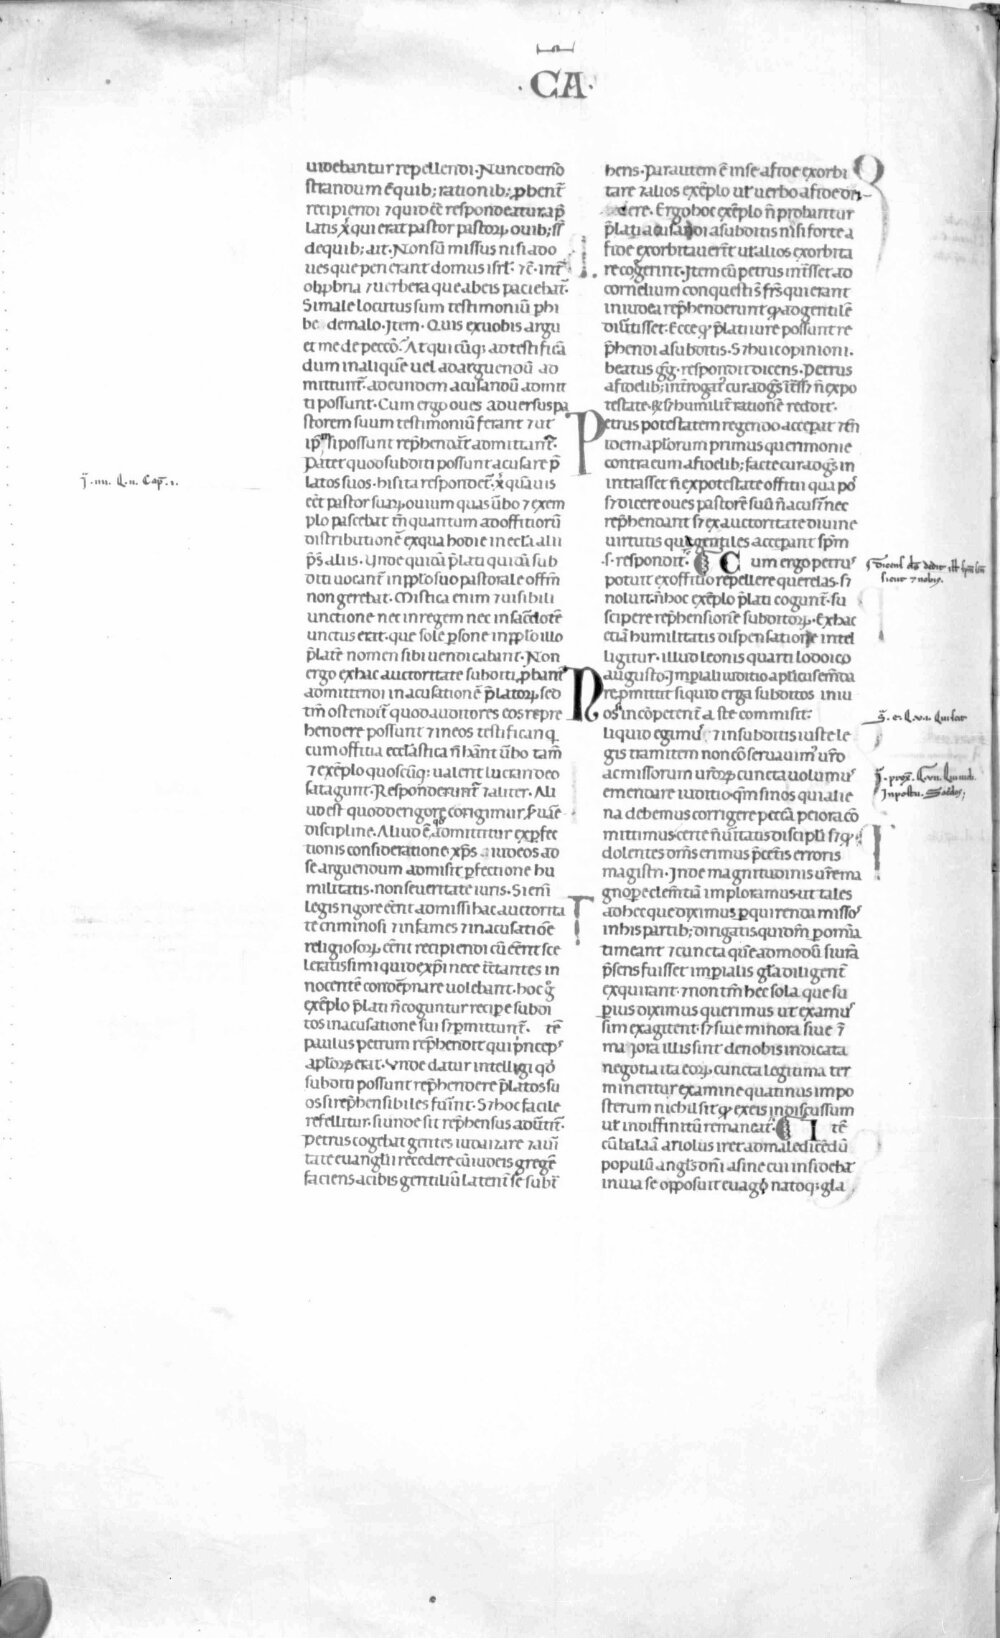 ·CA·
uidebantur repellendi. Nunc demõ
strandum ẽ quib; rationib; ꝓbent̃
recipiendi ⁊ quid eẽ respondeatur. ap̃
latis xp̃c erat pastor pastoꝝ ouib; s̃
de quib; ait. Non sũ missus nisi ad o
ues que perierant domus isrl̃. ⁊c̃. int̃
obꝓbria ⁊ uerbera que ab eis paciebat̃.
Si male locutus sum testimoniũ phi
be de malo. Item. Quis ex uobis argu
et me de pecc̃o. At quicũq; ad testificã
dum in aliquẽ uel ad arguendũ ad
mittunt̃. ad eundem acusandũ admit
ti possunt. Cum ergo oues aduersus pa
storem suum testimoniũ ferant ⁊ ut
ip̃m si possunt rep̃hendãt admittant̃.
Patet quod subditi possunt acusare p̃
latos suos. his ita respondet̃. xp̃c quãuis
eẽt pastor suaꝝ ouium quas ũbo ⁊ exem
plo pascebat tñ quantum ad offitiorũ
distributionẽ ex qua hodie in eccl̃a alii
p̃s̃ aliis. Vnde quidã p̃lati quidã sub
diti uocant̃ in pp̃lo suo pastorale offm̃
non gerebat. Mistica enim ⁊ uisibili
unctione nec in regem nec in sac̃dotẽ
unctus erat. que sole ꝑsone in pp̃lo illo
p̃latẽ nomen sibi uendicabant. Non
ergo ex hac auctoritate subditi ꝓbant̃
admittendi in acusationẽ p̃latoꝝ sed
tm̃ ostendit̃ quod auditores eos repre
hendere possunt ⁊ in eos testificari q
cum offitia eccl̃astica ñ hãnt ũbo tam̃
⁊ exẽplo quoscũq; ualent lucrari deo
satagunt. Respondetur ⁊ aliter. Ali
ud est quod de rigore corrigimur. ⁊ ser uãe
discipline. Aliud ẽ quod admittitur ex ꝑfec
tionis consideratione. xp̃s iudeos ad
se arguendum admisit ꝑfectione hu
militatis. non seueritate iuris. Si em̃
legis rigore eẽnt admissi hac auctorita
te criminosi ⁊ infames ⁊ in acusatiõe
religiosoꝝ eẽnt recipiendi cũ eẽnt sce
leratissimi qui de xp̃i nece tractantes in
nocentẽ condẽpnare uolebant. hoc g̃
exẽplo p̃lati ñ coguntur recipe subdi
tos in acusatione sui s̃ ꝑmittunt̃. Itẽ
paulus petrum rep̃hendit qui p̃nceps
ap̃loꝝ erat. Vnde datur intelligi qd̃
subditi possunt rep̃hendere p̃latos su
os si rep̃hensibiles fuĩnt. S⁊ hoc facile
refellitur. si unde sit rep̃hensus aduti͂t.
Petrus cogebat gentes iudaizare ⁊ a ui͂
tate euanglii recedere cũ iudeis gregẽ
faciens a cibis gentiliũ latent̃ se subt̃
hens. Par autem ẽ in se a fide exorbi
tare ⁊ alios exẽplo ut̃ uerbo a fide de
icere. Ergo hoc exẽplo ñ probantur
p̃lati acusandi a subditis nisi forte a
fide exorbitauerint̃ ut̃ alios exorbita
re cogerint. Item cũ petrus int̃sset ad
cornelium conquesti s̃ frs̃ qui erant
in iudea rep̃henderunt qd̃ ad gentilẽ
diũtisset. Ecce qd̃ p̃lati iure possunt re
p̃hendi a subditis. S⁊ huic opinioni.
beatus g̃g̃. respondit dicens. Petrus
a fidelib; int̃rogat̃ cur ad g̃s it̃sset ñ ex po
testate. s̃ ⁊ humilit̃ rationẽ reddit.
Petrus potestatem regendo acceꝑat ⁊ tñ
idem aplorum primus querimonie
contra eum a fidelib; facte cur ad g̃s in
intrasset ñ ex potestate offitii qua pos̃
s⁊ dicere oues pastorẽ suũ ñ acuset nec
rep̃hendant s⁊ ex auctoritate diuine
uirtutis qua gentiles acceꝑant sp̃m
.s. respondit. Cum ergo petrus
potuit ex offitio repellere querelas. s⁊
noluit. ñ hoc exẽplo p̃lati cogunt̃. su
scipere rep̃hensionẽ subditoꝝ. Ex hac
etiã humilitatis dispensatione intel
ligitur. illud leonis quarti lodoico
augusto. Imꝑiali iuditio ap̃licus emẽda
re ꝑmittit si quid erga subditos iniu
Nos si incõpetent̃ aliquid ste commisit.
liquid egimus ⁊ in subditis iuste le
gis tramitem non cõseruauimus. ur̃o
ac missorum ur̃oꝝ cuncta uolumus
emendare iuditio. qm̃ si nos qui alie
na debemus corrigere pecc̃a peiora cõ
mittimus certe ñ ui͂tatis discipl̃i s⁊ qd̃
dolentes dm̃s erimus p̃ cet̃is erroris
magistri. Inde magnitudinis ur̃e ma
gnopꝑe clem̃tiã imploramus. ut tales
ad hec que diximus ꝑquirenda missos
in his partib; dirigatis qui dm̃ ꝑ omĩa
timeant ⁊ cuncta quẽadmodũ si ur̃a
p̃sens fuisset imꝑialis gl̃a diligent̃
exquirant. ⁊ non tm̃ hec sola que su
perius diximus querimus ut examus
sim exagitent. s⁊ siue minora siue ⁊
maiora illis sint de nobis indicata
negotia ita eoꝝ cuncta legitima ter
minentur examine quatinus impo
sterum nichil sit qd̃ ex eis indiscussum
ut̃ indiffinitũ remaneat. Itẽ
cũ balaã ariolus iret ad maledicẽdũ
populũ angls̃ dñi asine cui insidebat̃
in uia se opposuit euagi͂natoq; gla